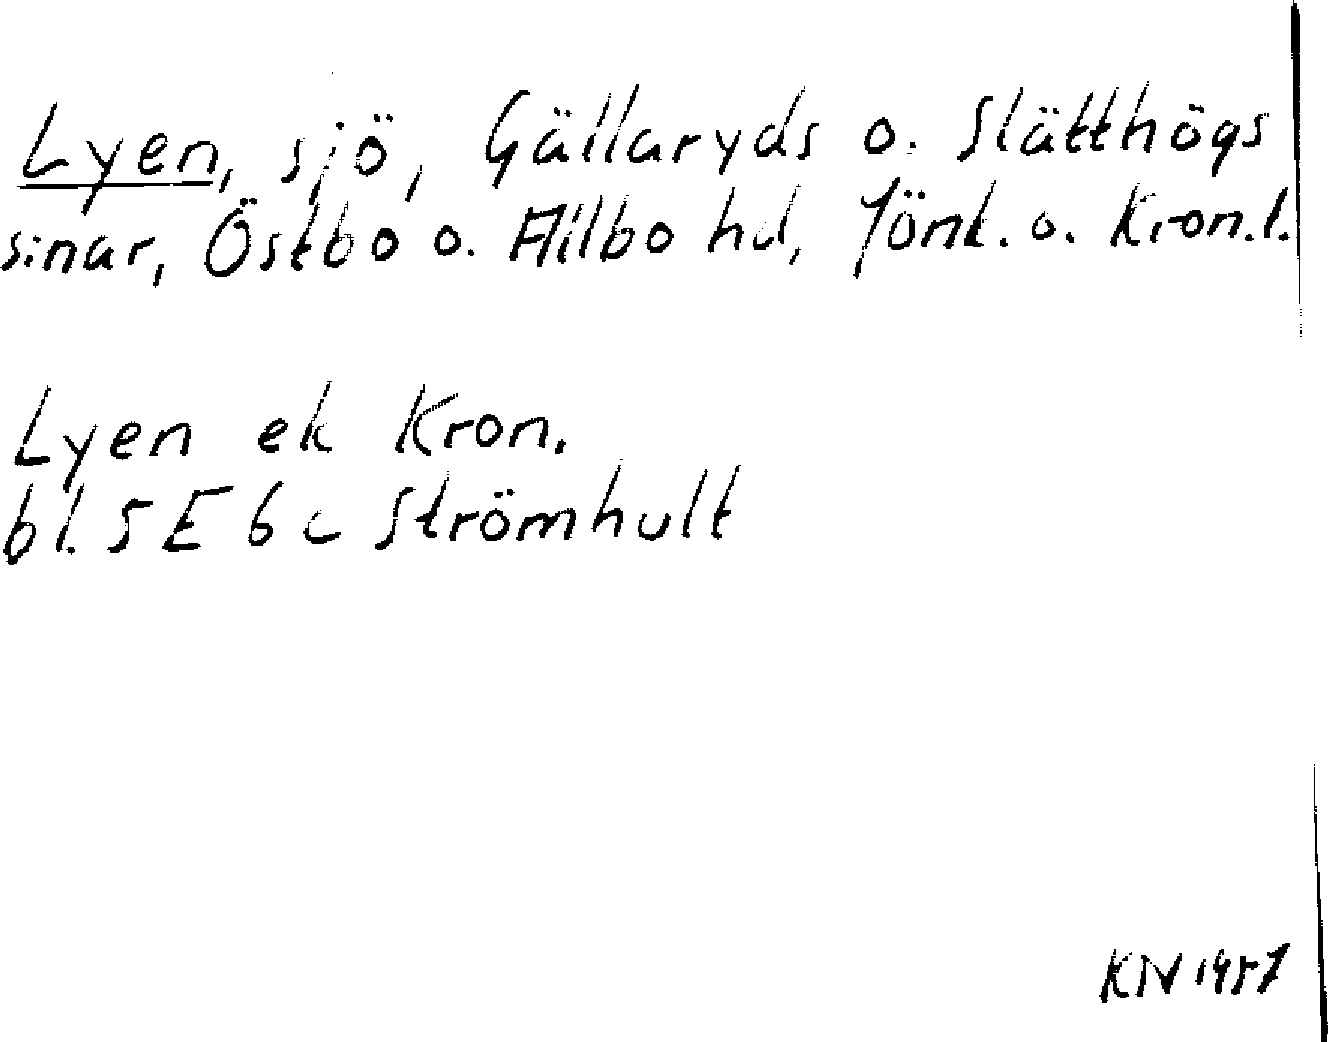 Lyen, sjö, Gällaryds o. Slätthögs
s:nar, Östbo o. Allbo hd, Jönk. o. Kron.l.
Lyen ek Kron.
bl. 5 E 6 c Strömhult
KN 1957